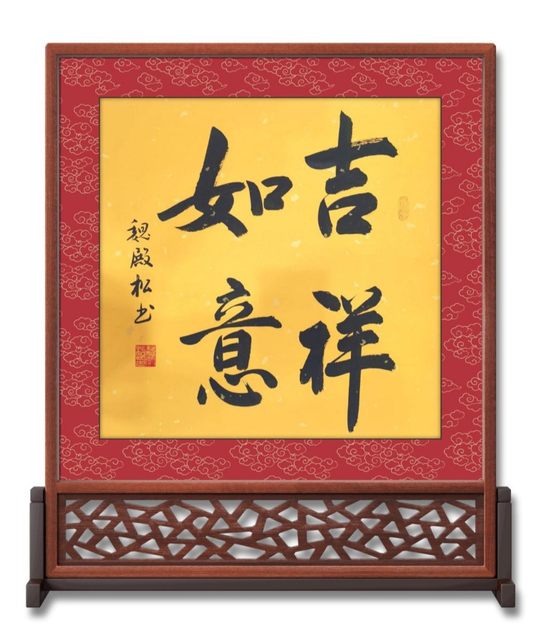 吉祥
如意
魏殿松书